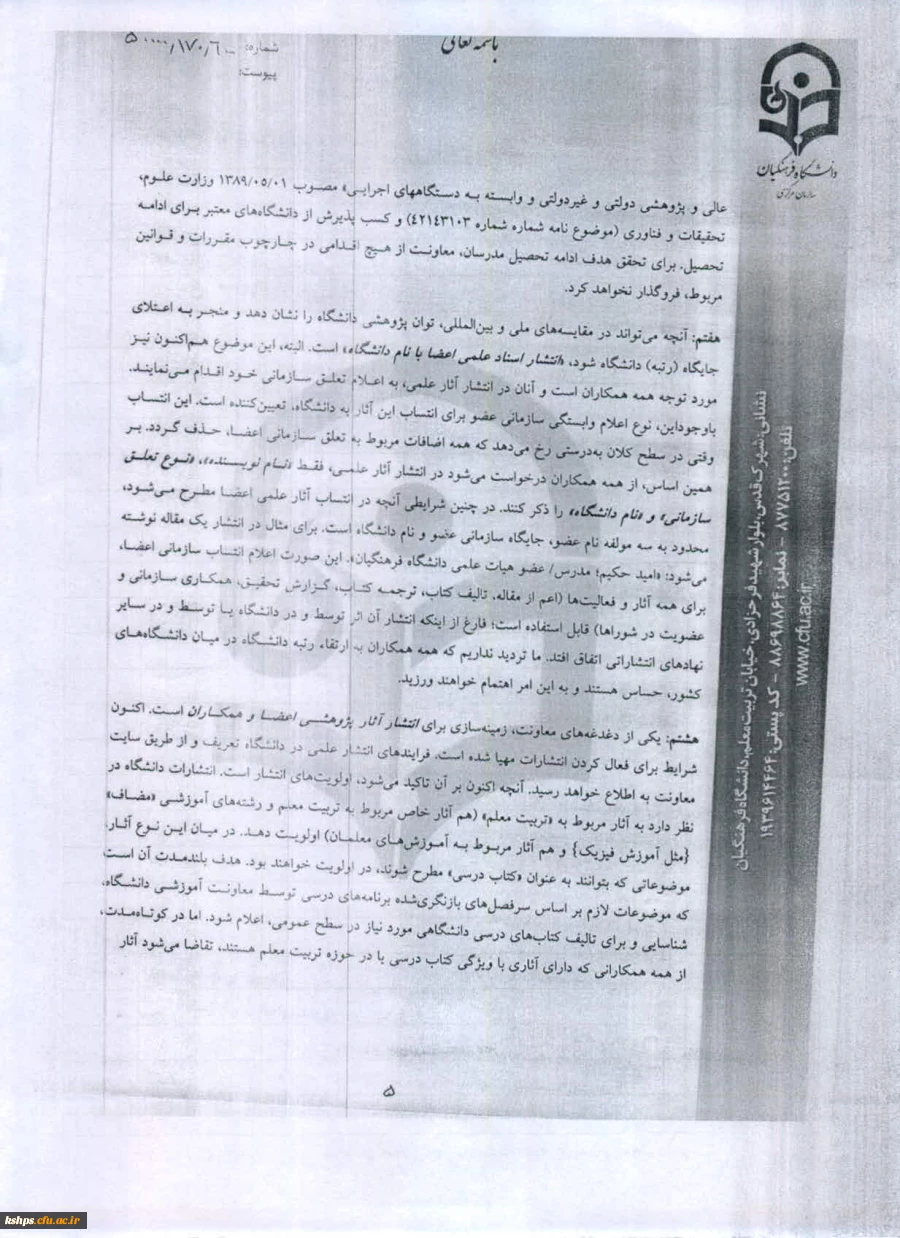 باسمه تعالی
شماره: ۵۰۰۰۰/۱۷۰/۶
پیوست:
دانشگاه فرهنگیان
سازمان مرکزی
عالی و پژوهشی دولتی و غیردولتی و وابسته به دستگاههای اجرایی» مصوب ۱۳۸۹/۰۵/۰۱ وزارت علوم،
تحقیقات و فناوری (موضوع نامه شماره شماره ۴۲۱۴۳۱۰۳) و کسب پذیرش از دانشگاه‌های معتبر برای ادامه
تحصیل. برای تحقق هدف ادامه تحصیل مدرسان، معاونت از هیچ اقدامی در چارچوب مقررات و قوانین
مربوط، فروگذار نخواهد کرد.
هفتم: آنچه می‌تواند در مقایسه‌های ملی و بین‌المللی، توان پژوهشی دانشگاه را نشان دهد و منجر به اعتلای
جایگاه (رتبه) دانشگاه شود، «انتشار اسناد علمی اعضا با نام دانشگاه» است. البته، این موضوع هم‌اکنون نیز
مورد توجه همه همکاران است و آنان در انتشار آثار علمی، به اعلام تعلق سازمانی خود اقدام می‌نمایند.
باوجوداین، نوع اعلام وابستگی سازمانی عضو برای انتساب این آثار به دانشگاه، تعیین‌کننده است. این انتساب
وقتی در سطح کلان به‌درستی رخ می‌دهد که همه اضافات مربوط به تعلق سازمانی اعضا، حذف گردد. بر
همین اساس، از همه همکاران درخواست می‌شود در انتشار آثار علمی، فقط «نام نویسنده»، «نوع تعلق
سازمانی» و «نام دانشگاه» را ذکر کنند. در چنین شرایطی آنچه در انتساب آثار علمی اعضا مطرح می‌شود،
محدود به سه مولفه نام عضو، جایگاه سازمانی عضو و نام دانشگاه است. برای مثال در انتشار یک مقاله نوشته
می‌شود: «امید حکیم؛ مدرس/ عضو هیات علمی دانشگاه فرهنگیان». این صورت اعلام انتساب سازمانی اعضا،
برای همه آثار و فعالیت‌ها (اعم از مقاله، تالیف کتاب، ترجمه کتاب، گزارش تحقیق، همکاری سازمانی و
عضویت در شوراها) قابل استفاده است؛ فارغ از اینکه انتشار آن اثر توسط و در دانشگاه یا توسط و در سایر
نهادهای انتشاراتی اتفاق افتد. ما تردید نداریم که همه همکاران به ارتقاء رتبه دانشگاه در میان دانشگاه‌های
کشور، حساس هستند و به این امر اهتمام خواهند ورزید.
هشتم: یکی از دغدغه‌های معاونت، زمینه‌سازی برای انتشار آثار پژوهشی اعضا و همکاران است. اکنون
شرایط برای فعال کردن انتشارات مهیا شده است. فرایندهای انتشار علمی در دانشگاه تعریف و از طریق سایت
معاونت به اطلاع خواهد رسید. آنچه اکنون بر آن تاکید می‌شود، اولویت‌های انتشار است. انتشارات دانشگاه در
نظر دارد به آثار مربوط به «تربیت معلم» (هم آثار خاص مربوط به تربیت معلم و رشته‌های آموزشی «مضاف»
{مثل آموزش فیزیک} و هم آثار مربوط به آموزش‌های معلمان) اولویت دهد. در میان این نوع آثار،
موضوعاتی که بتوانند به عنوان «کتاب درسی» مطرح شوند، در اولویت خواهند بود. هدف بلندمدت آن است
که موضوعات لازم بر اساس سرفصل‌های بازنگری‌شده برنامه‌های درسی توسط معاونت آموزشی دانشگاه،
شناسایی و برای تالیف کتاب‌های درسی دانشگاهی مورد نیاز در سطح عمومی، اعلام شود. اما در کوتاه‌مدت،
از همه همکارانی که دارای آثاری با ویژگی کتاب درسی یا در حوزه تربیت معلم هستند، تقاضا می‌شود آثار
۵
نشانی: شهرک قدس، بلوار شهید فرحزادی، خیابان تربیت معلم، دانشگاه فرهنگیان
تلفن: ۸۷۷۵۱۲۰۰ - نمابر: ۸۸۶۹۸۸۶۴ - کد پستی: ۱۹۳۹۶۱۴۴۶۴
www.cfu.ac.ir
kshps.cfu.ac.ir